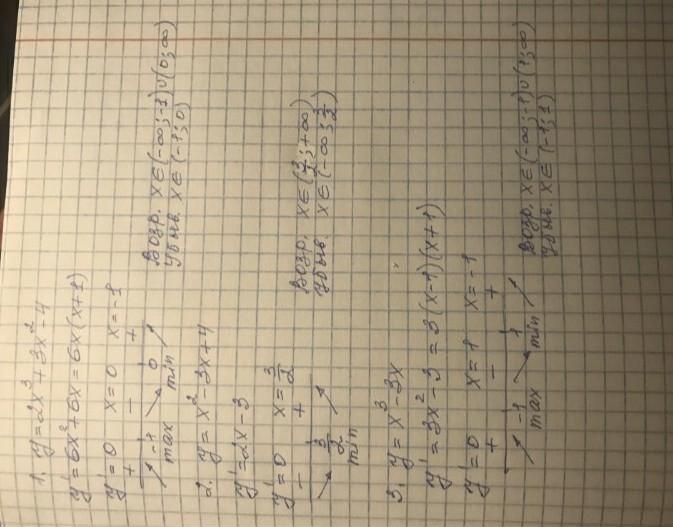 1. y = 2x³ + 3x² - 4
y' = 6x² + 6x = 6x(x+1)
y' = 0 x = 0 x = -1
+ - +
-1 0
max min
Возр. x ∈ (-∞; -1) ∪ (0; ∞)
Убыв. x ∈ (-1; 0)
2. y = x² - 3x + 4
y' = 2x - 3
y' = 0 x = 3/2
- +
3/2
min
Возр. x ∈ (3/2; +∞)
Убыв. x ∈ (-∞; 3/2)
3. y = x³ - 3x
y' = 3x² - 3 = 3(x-1)(x+1)
y' = 0 x = 1 x = -1
+ - +
-1 1
max min
Возр. x ∈ (-∞; -1) ∪ (1; ∞)
Убыв. x ∈ (-1; 1)